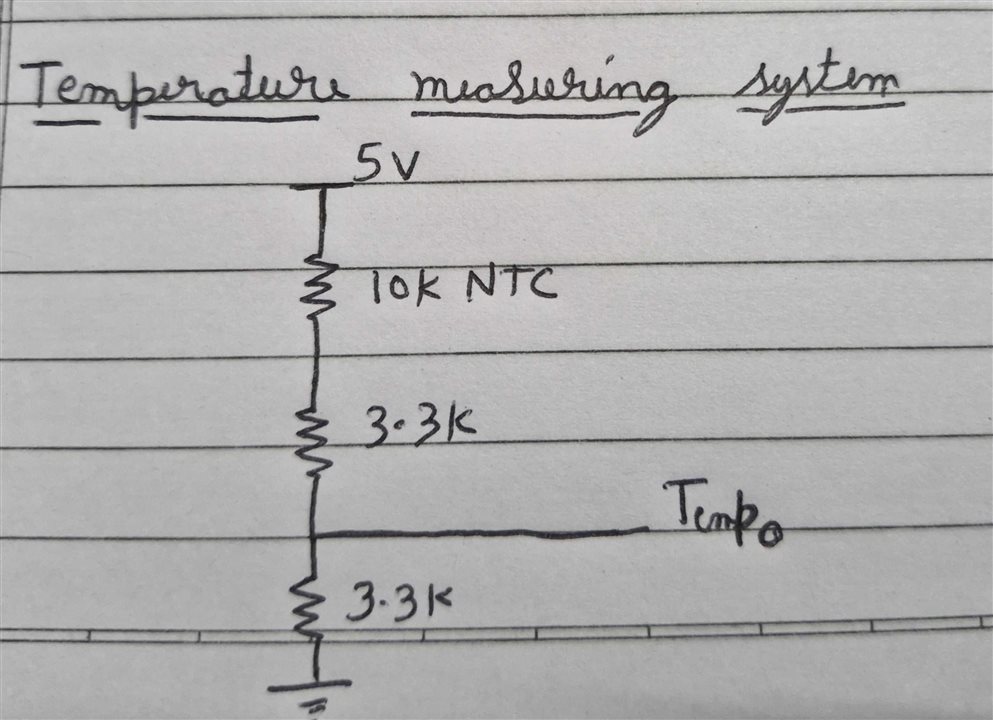 Temperature measuring system
5V
10K NTC
3.3K
Temp0
3.3K